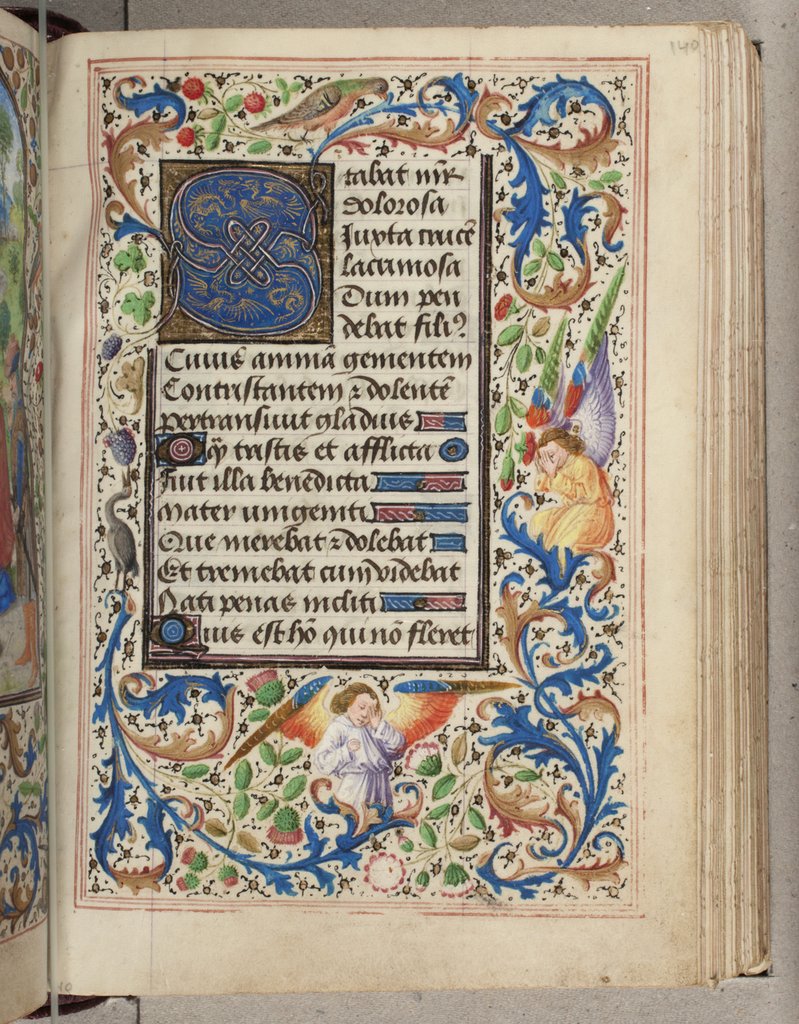 140
Stabat mr̄
dolorosa
Juxta crucē
lacrimosa
Dum pen
debat filiꝰ
Cuius animā gementem
Contristantem ⁊ dolentē
pertransiuit gladius
O q̄ tristis et afflicta
fuit illa benedicta
Mater unigeniti
Que merebat ⁊ dolebat
Et tremebat cum videbat
Nati penas incliti
Quis est hō qui nō fleret